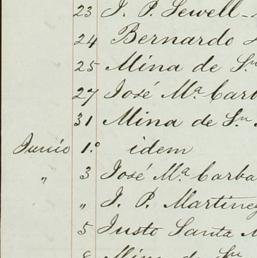 23 J. P. Sewell
24 Bernardo
25 Mina de Sn
27 José Ma. Carb
31 Mina de Sn
Junio 1.º idem
" 3 José Ma. Carba
" J. P. Martinez
5 Justo Santa
8 Mina de Sn